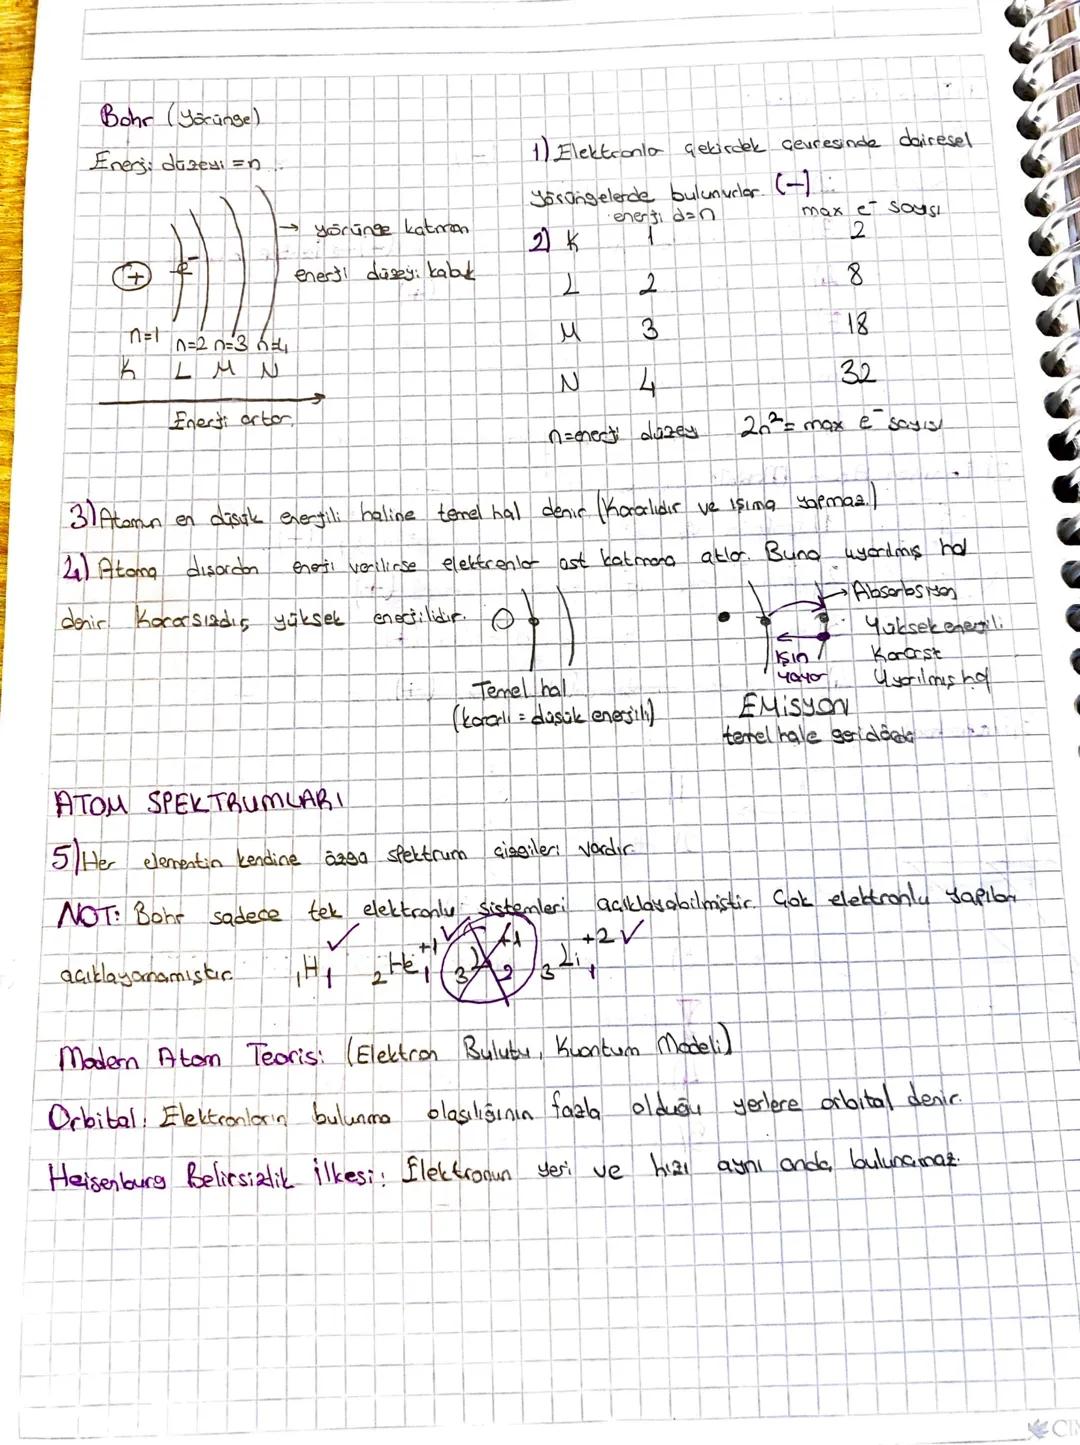 Bohr (Yörünge)
Enerji düzeyi = n
→ yörünge katman
enerji düzeyi kabuk
+ e-
n=1 n=2 n=3 n=4
K L M N
Enerji artar.
1) Elektronlar çekirdek çevresinde dairesel
yörüngelerde bulunurlar. (-)
enerji d=n max e- sayısı
2) K 1 2
L 2 8
M 3 18
N 4 32
n=enerji düzey 2n²= max e- sayısı
3) Atomun en düşük enerjili haline temel hal denir (Kararlıdır ve ışıma yapmaz.)
4) Atoma dışardan enerji verilirse elektronlar üst katmana atlar. Buna uyarılmış hal
denir. Kararsızdır, yüksek enerjilidir.
Temel hal
(kararlı = düşük enerjili)
→ Absorbsiyon
Yüksek enerjili
Kararsız
Uyarılmış hal
Işın
yayar
EMİSYON
temel hale geri döner
ATOM SPEKTRUMLARI
5) Her elementin kendine özgü spektrum çizgileri vardır.
NOT: Bohr sadece tek elektronlu sistemleri açıklayabilmiştir. Çok elektronlu yapıları
açıklayamamıştır. ₁H₁ ✓ ₂He₁⁺¹ ✓ ₃Li₂⁺¹ ₃Li₁⁺² ✓
Modern Atom Teorisi: (Elektron Bulutu, Kuantum Modeli)
Orbital: Elektronların bulunma olasılığının fazla olduğu yerlere orbital denir.
Heisenburg Belirsizlik İlkesi: Elektronun yeri ve hızı aynı anda bulunamaz.